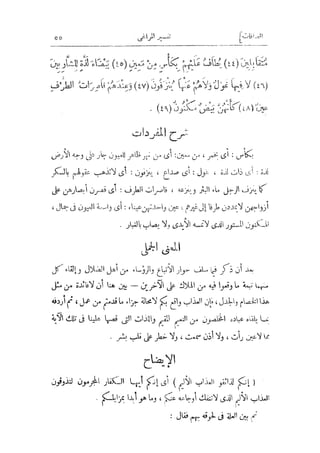 الصافات] تفسير المراغى ٥٥
مُتَقَابِلِينَ (٤٤) يُطَافُ عَلَيْهِمْ بِكَأْسٍ مِنْ مَعِينٍ (٤٥) بَيْضَاءَ لَذَّةٍ لِلشَّارِبِينَ
(٤٦) لَا فِيهَا غَوْلٌ وَلَاهُمْ عَنْهَا يُنْزَفُونَ (٤٧) وَعِنْدَهُمْ قَاصِرَاتُ الطَّرْفِ
عِينٌ (٤٨) كَأَنَّهُنَّ بَيْضٌ مَكْنُونٌ (٤٩) .
شرح المفردات
بكأس : أى بخمر ، من معين : أى من نهر ظاهر للعيون جار على وجه الأرض
لذة : أى ذات لذة ، غول : أى صداع ، ينزفون : أى لا تذهب عقولهم بالسكر
كما ينزف الرجل ماء البئر وينزعه ، قاصرات الطرف : أى قصرن أبصارهن على
أزواجهن لا يمددن طرفا إلى غيرهم ، عين واحدتهن عيناء : أى واسعة العيون فى جمال ،
المكنون المستور الذى لا تمسه الأيدى ولا يصاب بالغبار .
المعنى الجملى
بعد أن ذكر فيما سلف حوار الأتباع والرؤساء من أهل الضلال وإلقاء كل
منهما تبعة ما وقعوا فيه من الهلاك على الآخرين – بين هنا أن لا فائدة من مثل
هذا الخصام والجدل ، فإن العذاب واقع بكم لا محالة جزاء ما قدمتم من عمل ، ثم أردفه
بما يلقاه عباده المخلصون من النعيم المقيم واللذات التى قصها علينا فى تلك الآية
مما لا عين رأت ، ولا أذن سمعت ، ولا خطر على قلب بشر .
الإيضاح
( إنكم لذائقو العذاب الأليم ) أى إنكم أيها الكفار المجرمون لتذوقون
العذاب الأليم الذى لا تنفك أوجاعه عنكم ، وما هو أبدا بمزايلكم .
ثم بين العلة فى لحوقه بهم فقال :